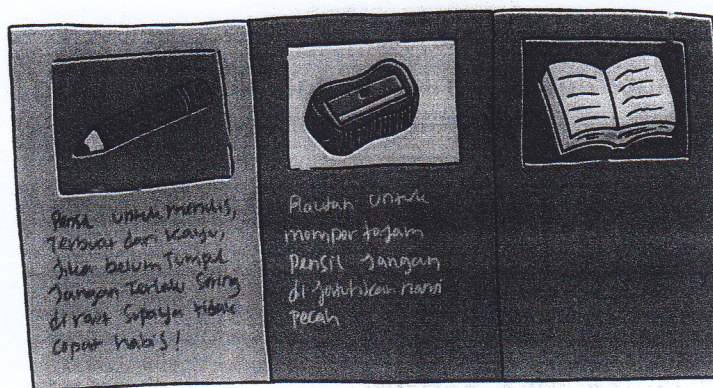 Pensil untuk menulis,
Terbuat dari kayu,
Jika belum Tumpul
Jangan Terlalu Sering
diraut Supaya tidak
Cepat habis!
Rautan untuk
mempertajam
Pensil Jangan
di jatuhkan nanti
Pecah